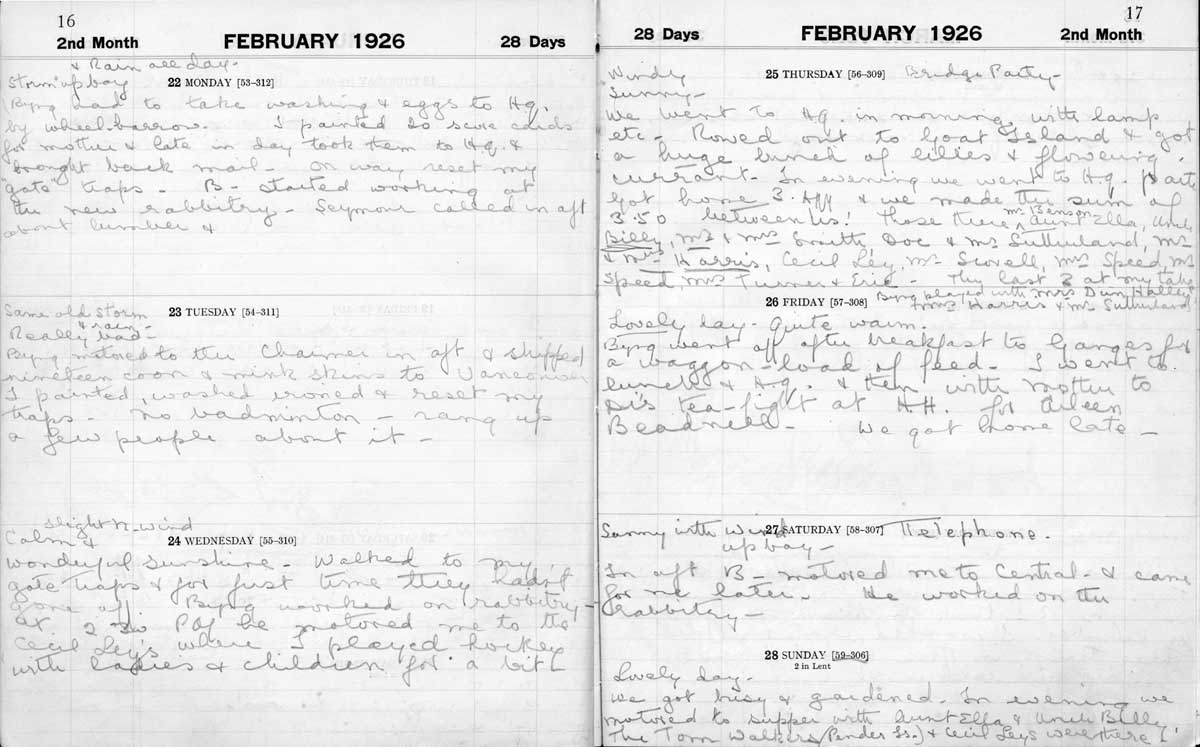 16
2nd Month FEBRUARY 1926 28 Days
& Rain all day -
Storm up bay
22 MONDAY [53-312]
Byng had to take washing & eggs to Hq.
by wheel-barrow. I painted 20 score cards
for mother & late in day took them to H.q. &
brought back mail - On way reset my
"gate" traps - B- started working at
the new rabbitry - Seymour called in aft
about lumber &
Same old storm
& rain -
23 TUESDAY [54-311]
Really bad -
Byng motored to the Charmer in aft & shipped
nineteen coon & mink skins to Vancouver
I painted, washed ironed & reset my
traps - No badminton - rang up
a few people about it -
Slight N. wind
Calm &
24 WEDNESDAY [55-310]
wonderful sunshine - Walked to my
gate traps & for first time they hadn't
gone off. Byng worked on rabbitry -
At 2.30 he motored me to the
Cecil Ley's where I played hockey
with ladies & children for a bit -
17
28 Days FEBRUARY 1926 2nd Month
Windy
25 THURSDAY [56-309] Bridge Party -
Sunny -
We went to Hq. in morning with lamp
etc - Rowed out to Goat Island & got
a huge bunch of lilies & flowering
currant - In evening we went to H.q. party
got home 3. & we made the sum of
3.50 between us! Those there Mr Benson Aunt Ella, Uncle
Billy, Mr & Mrs Smith, Doc & Mrs Sutherland, Mr
& Mrs Harris, Cecil Ley, Mr Scovell, Mr Speed, Mrs
Speed, Mrs Turner & Eric - The last 3 at my table
Byng played with Mrs
26 FRIDAY [57-308]
Mrs Harris & Mrs Sutherland
Lovely day - Quite warm.
Byng went off after breakfast to Ganges for
a waggon-load of feed. I went to
lunch & H.q. & then with mother to
Di's tea-fight at H.H. for Aileen
Beadnell - We got home late -
Sunny with Wind
27 SATURDAY [58-307] Telephone.
up bay -
In aft B- motored me to Central - & came
for me later. He worked on the
rabbitry -
28 SUNDAY [59-306]
2 in Lent
Lovely day.
We got busy & gardened. In evening we
motored to supper with Aunt Ella & Uncle Billy
The Tom Walkers (Pender Is.) & Cecil Leys were there